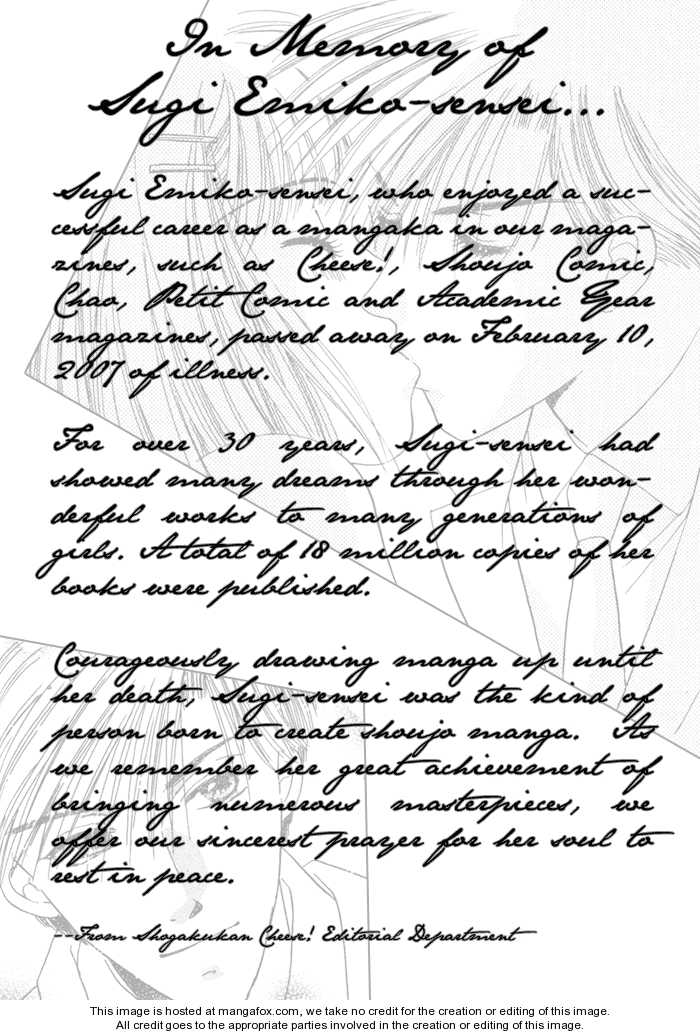 In Memory of
Sugi Emiko-sensei...
Sugi Emiko-sensei, who enjoyed a suc-
cessful career as a mangaka in our maga-
zines, such as Cheese!, Shoujo Comic,
Chao, Petit Comic and Academic Year
magazines, passed away on February 10,
2007 of illness.
For over 30 years, Sugi-sensei had
showed many dreams through her won-
derful works to many generations of
girls. A total of 18 million copies of her
books were published.
Courageously drawing manga up until
her death, Sugi-sensei was the kind of
person born to create shoujo manga. As
we remember her great achievement of
bringing numerous masterpieces, we
offer our sincerest prayer for her soul to
rest in peace.
--From Shogakukan Cheese! Editorial Department
This image is hosted at mangafox.com, we take no credit for the creation or editing of this image.
All credit goes to the appropriate parties involved in the creation or editing of this image.